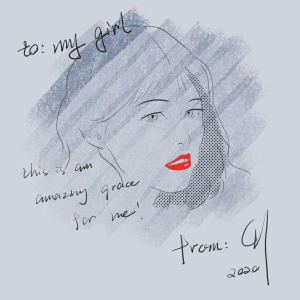 to: my girl
this is an
amazing grace
for me!
from:
2020